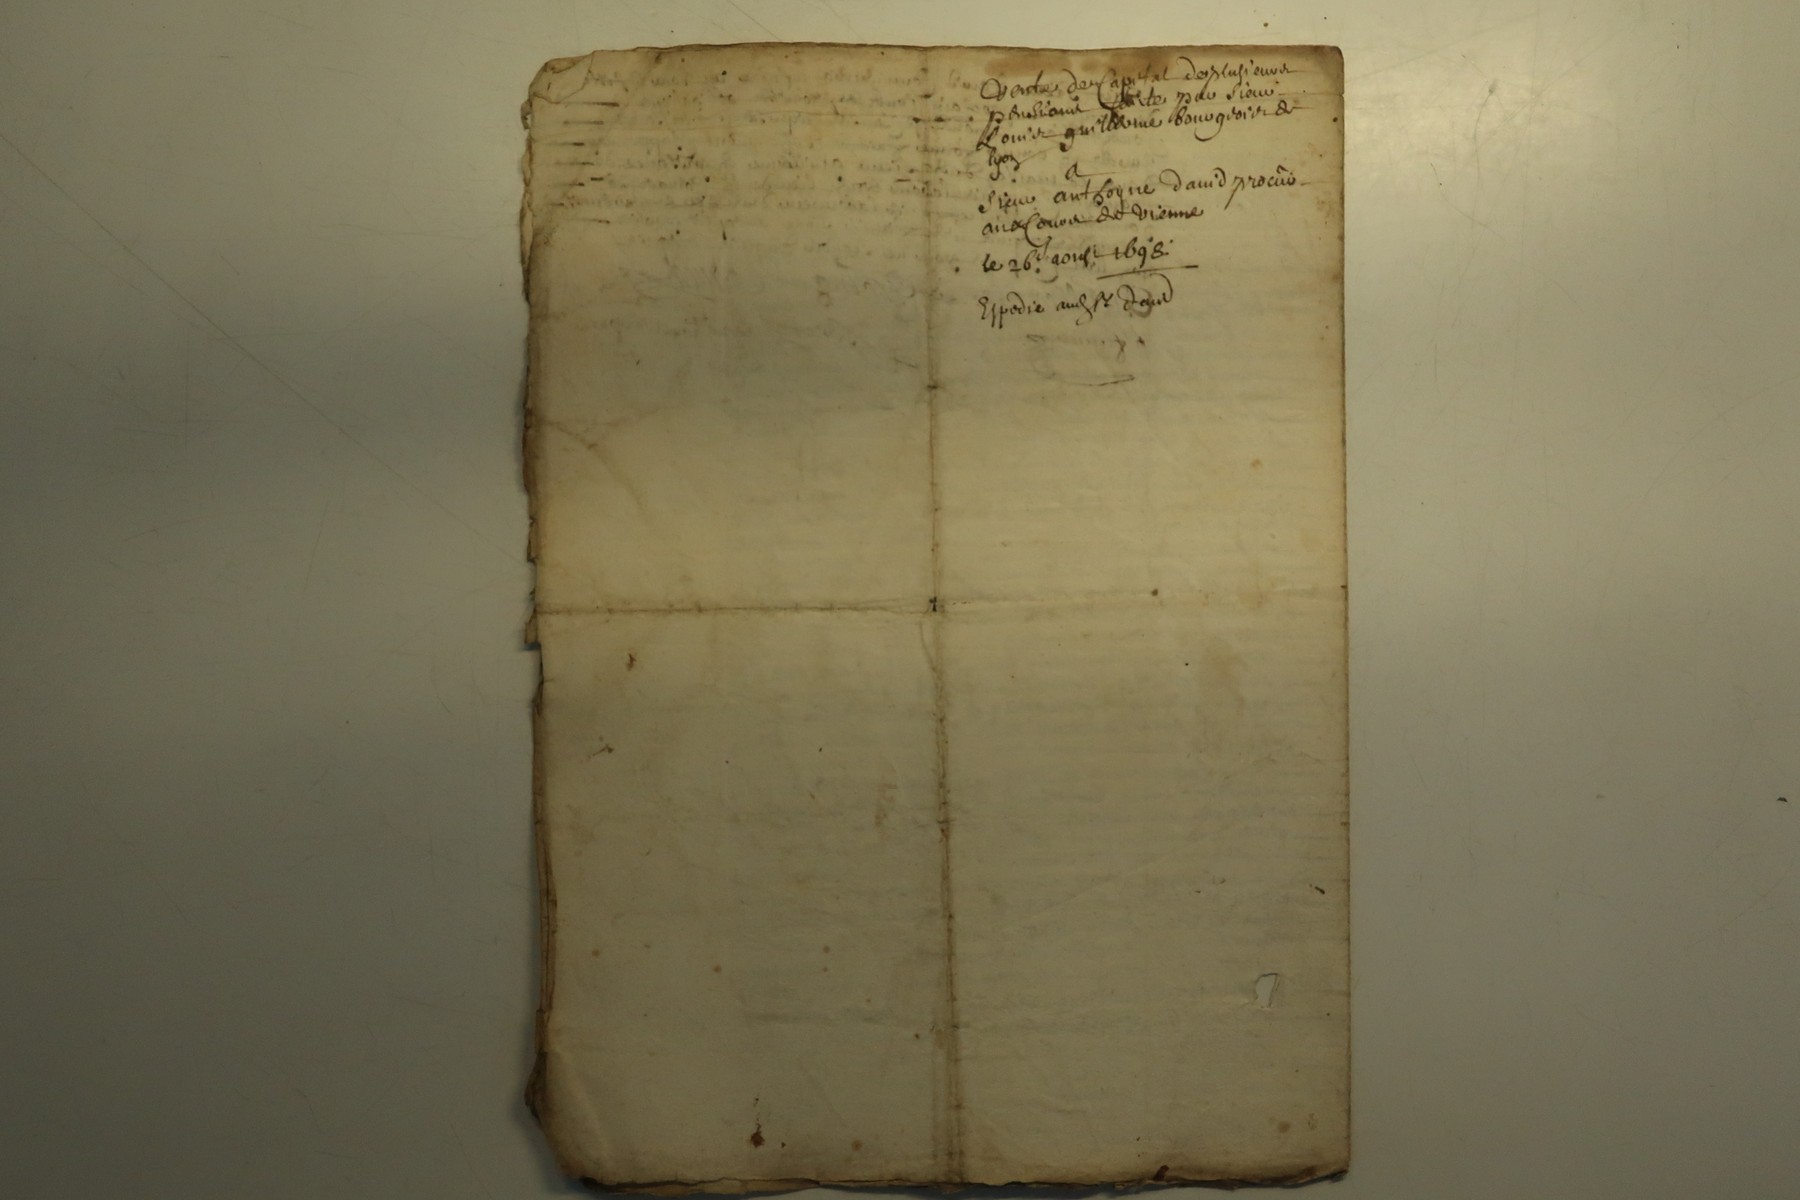 Vente de Capital de plusieurs
pensions faicte par sieur
Louis guilliermé bourgeois de
lyon
a
sieur anthoyne david procur
aux Cours de vienne
le 26e aoust 1698
Expedié audt sr david